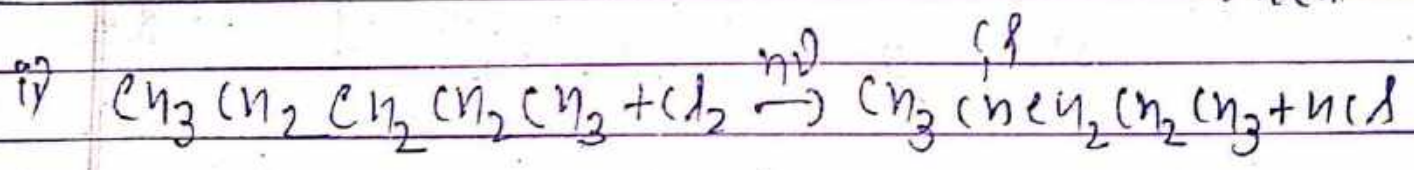 hν Cl
ii) CH3 CH2 CH2 CH2 CH3 + Cl2 → CH3 CH CH2 CH2 CH3 + HCl